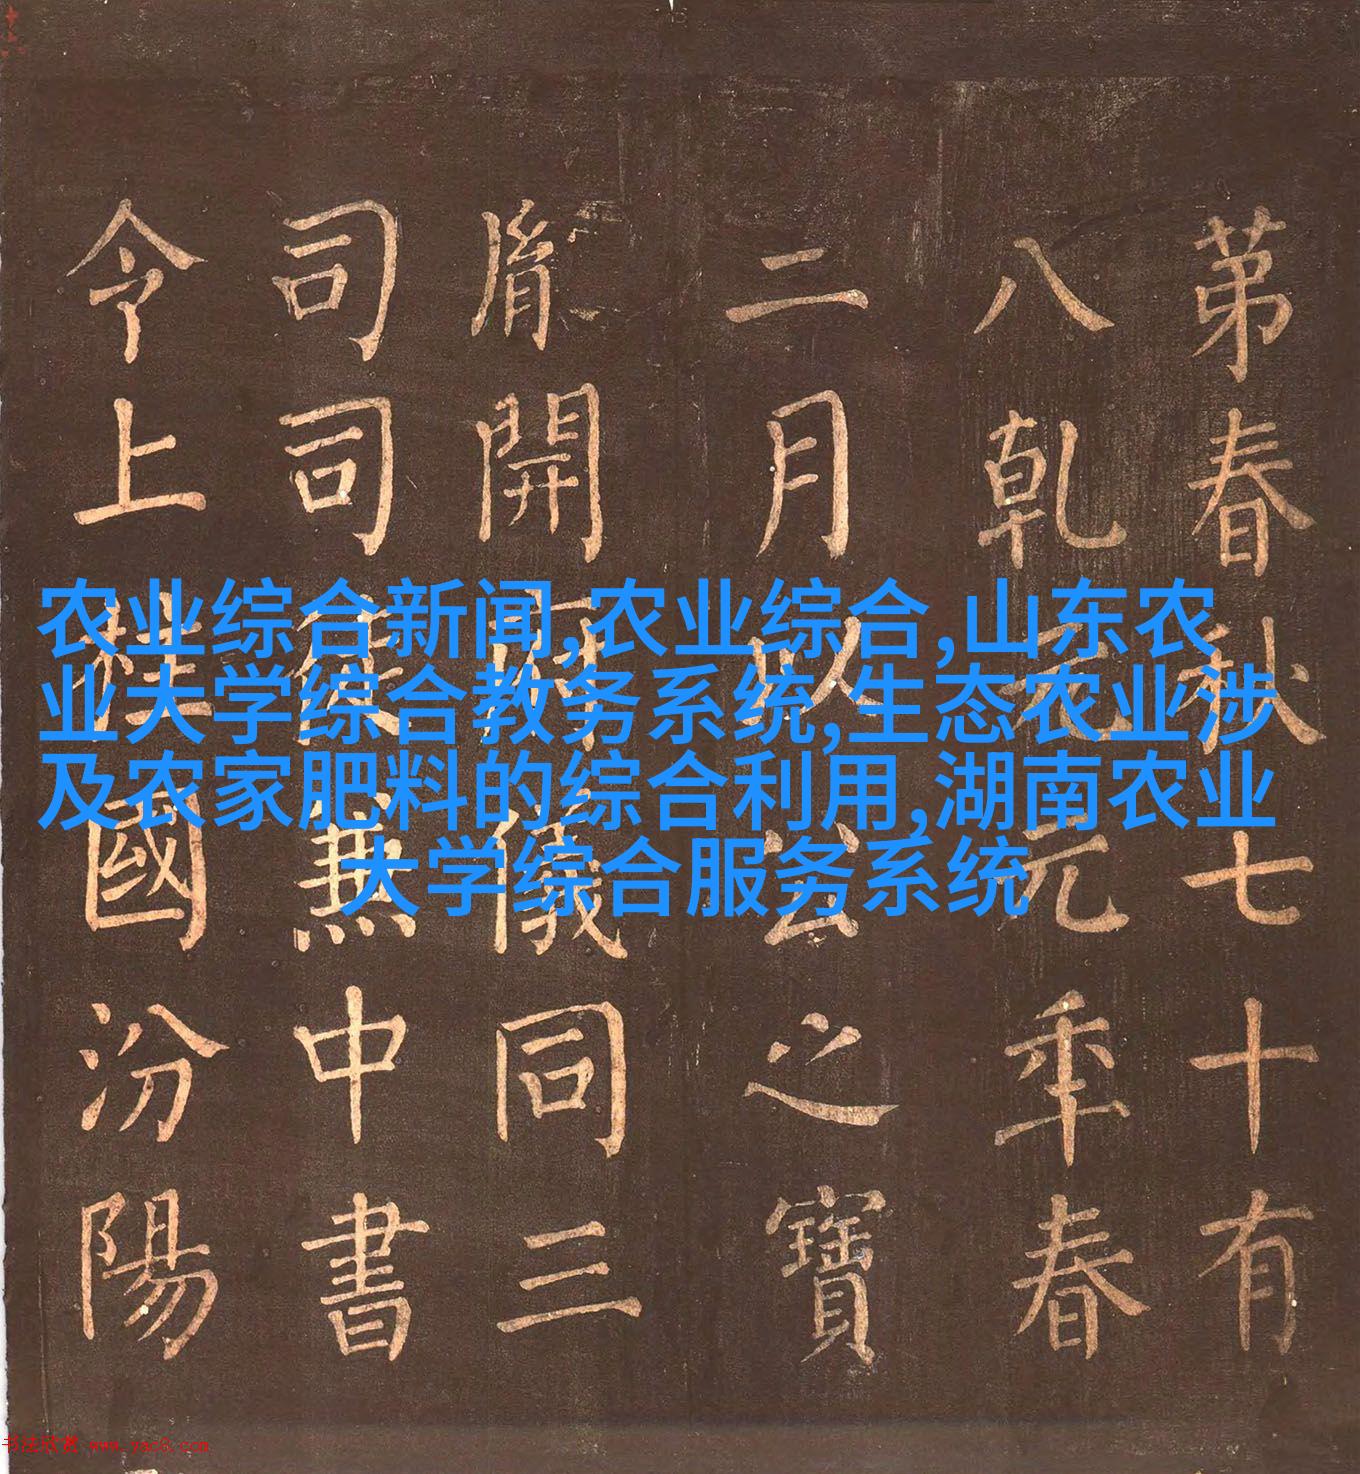 苐春秋七十有
八乾元元年春
二月以公之寶
胤開府儀同三
司司徒兼中書
令上柱國汾陽
农业综合新闻,农业综合,山东农
业大学综合教务系统,生态农业涉
及农家肥料的综合利用,湖南农业
大学综合服务系统
书法欣赏 www.yac8.com